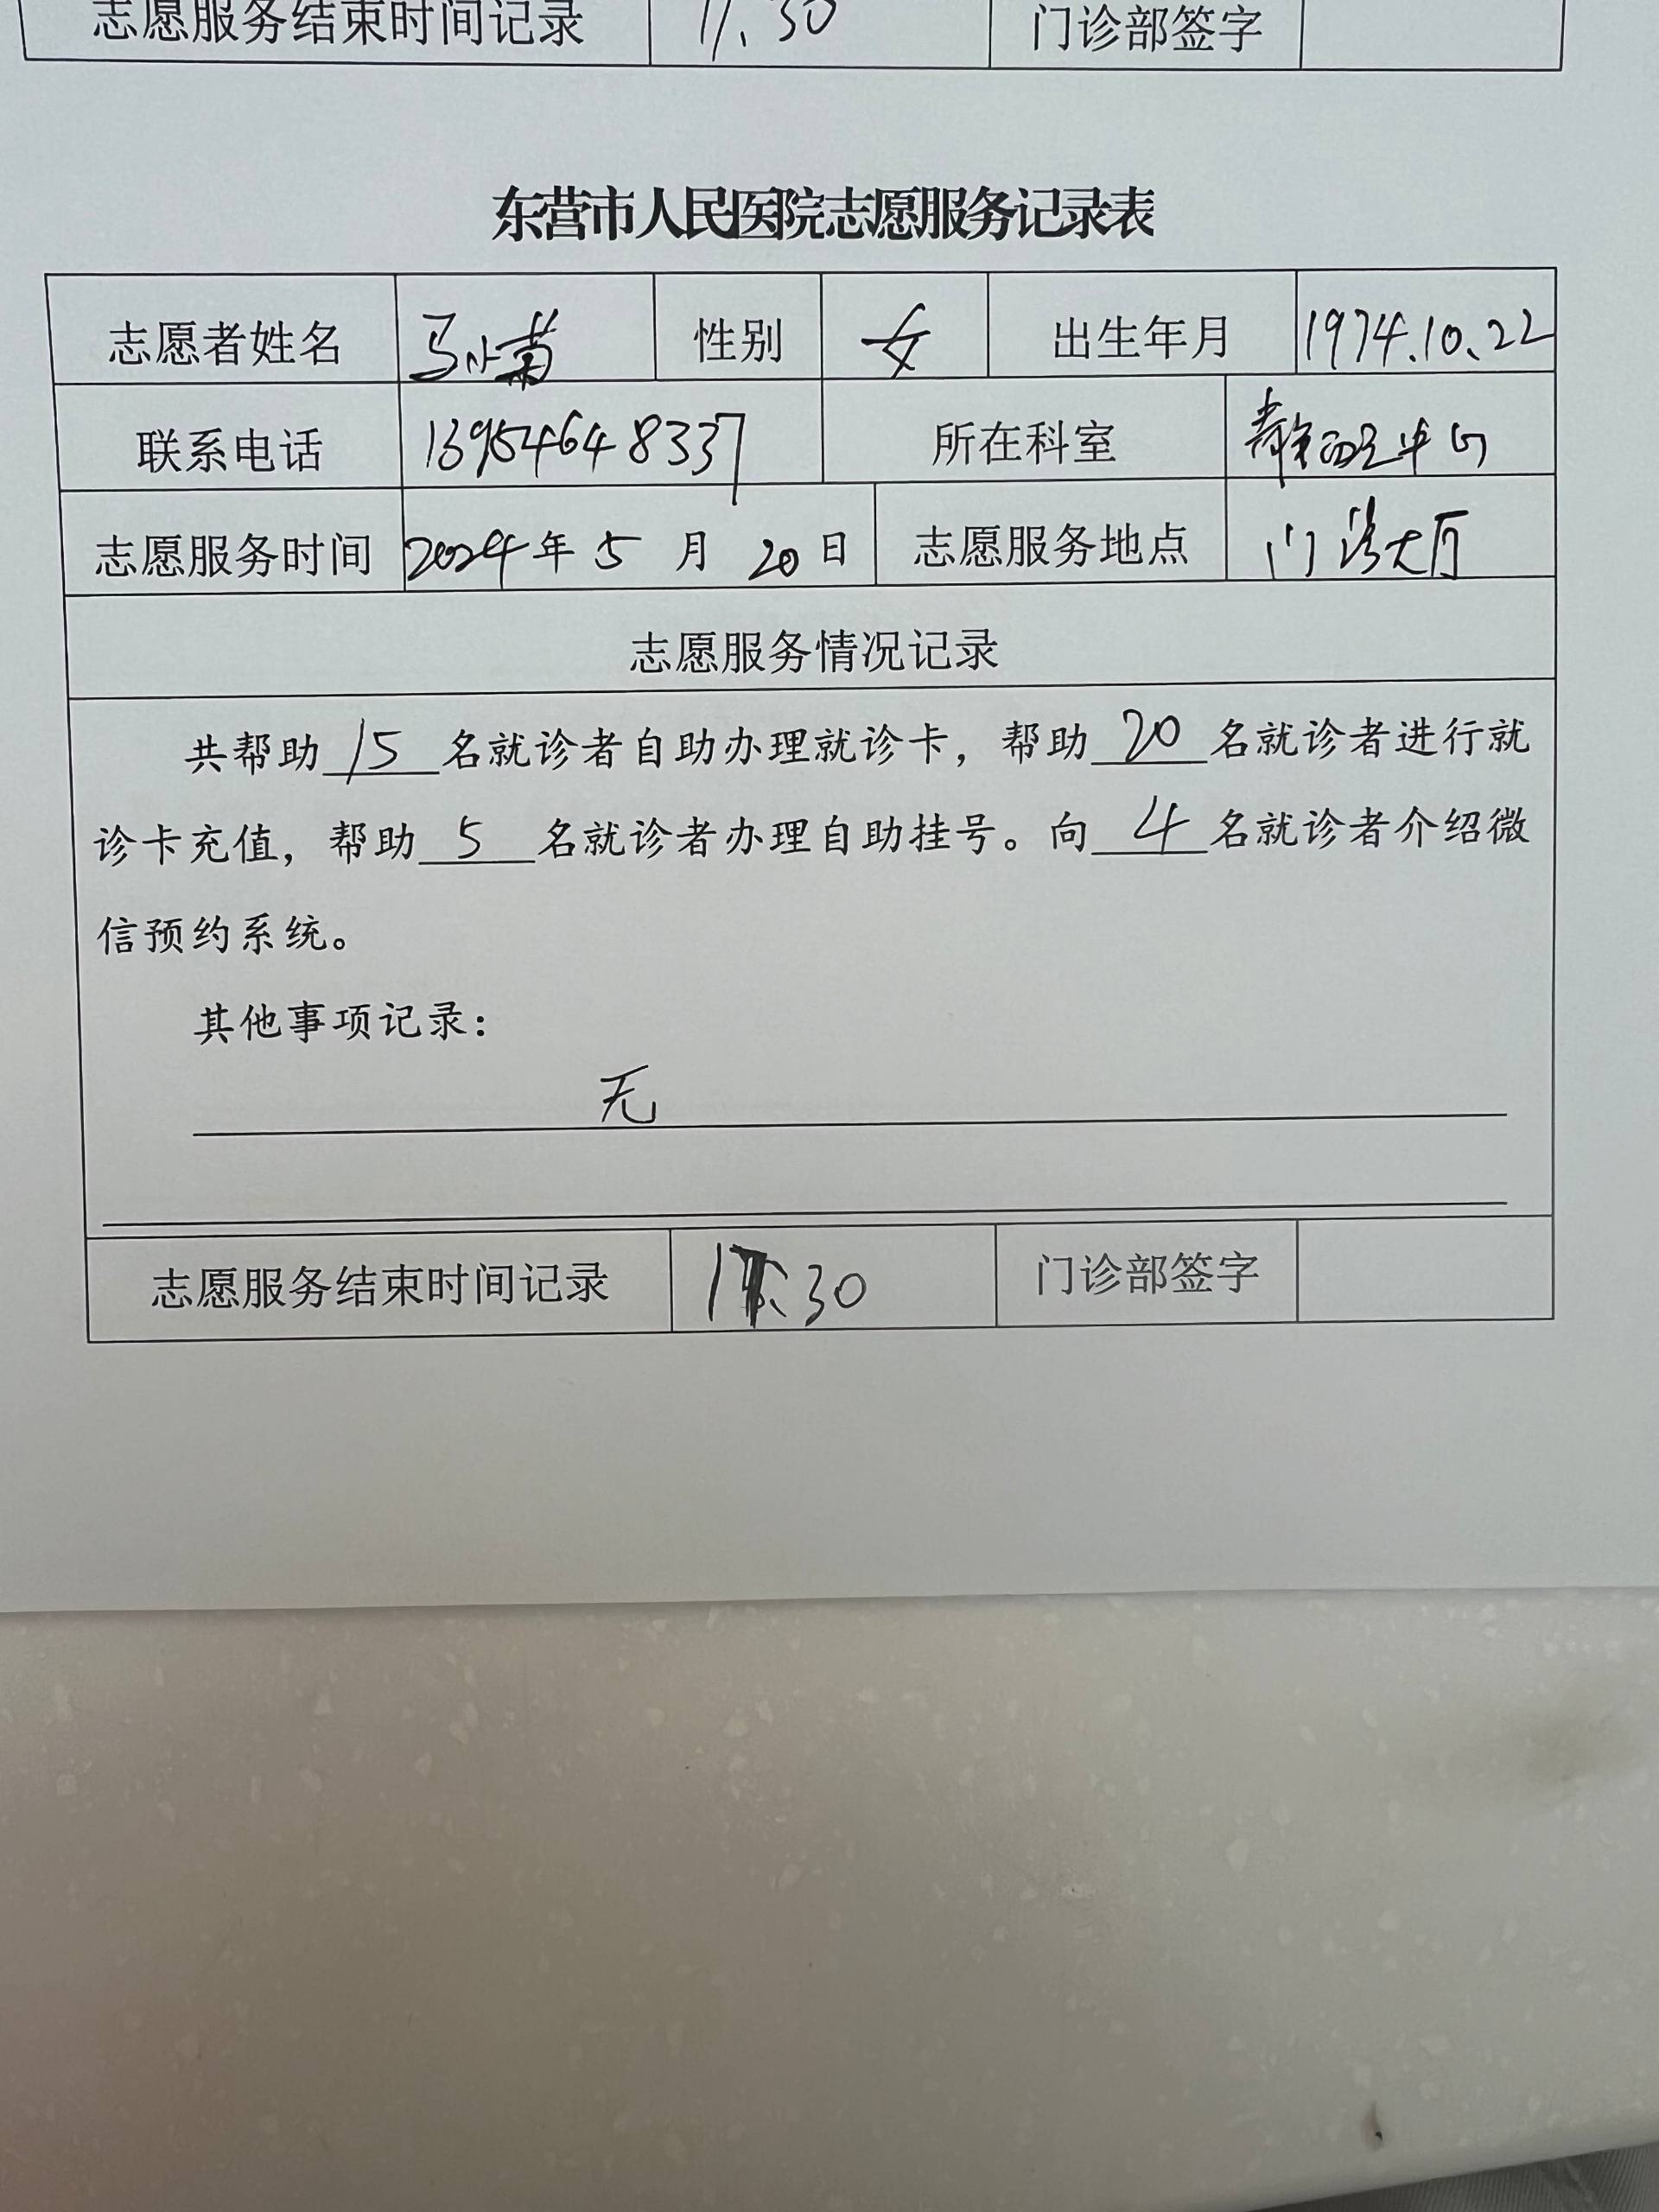 志愿服务结束时间记录 11.30 门诊部签字
东营市人民医院志愿服务记录表
志愿者姓名 马小菊 性别 女 出生年月 1974.10.22
联系电话 13954648337 所在科室 静配中心
志愿服务时间 2024年 5 月 20日 志愿服务地点 门诊大厅
志愿服务情况记录
共帮助 15 名就诊者自助办理就诊卡，帮助 20 名就诊者进行就
诊卡充值，帮助 5 名就诊者办理自助挂号。向 4 名就诊者介绍微
信预约系统。
其他事项记录：
无
志愿服务结束时间记录 :30 门诊部签字